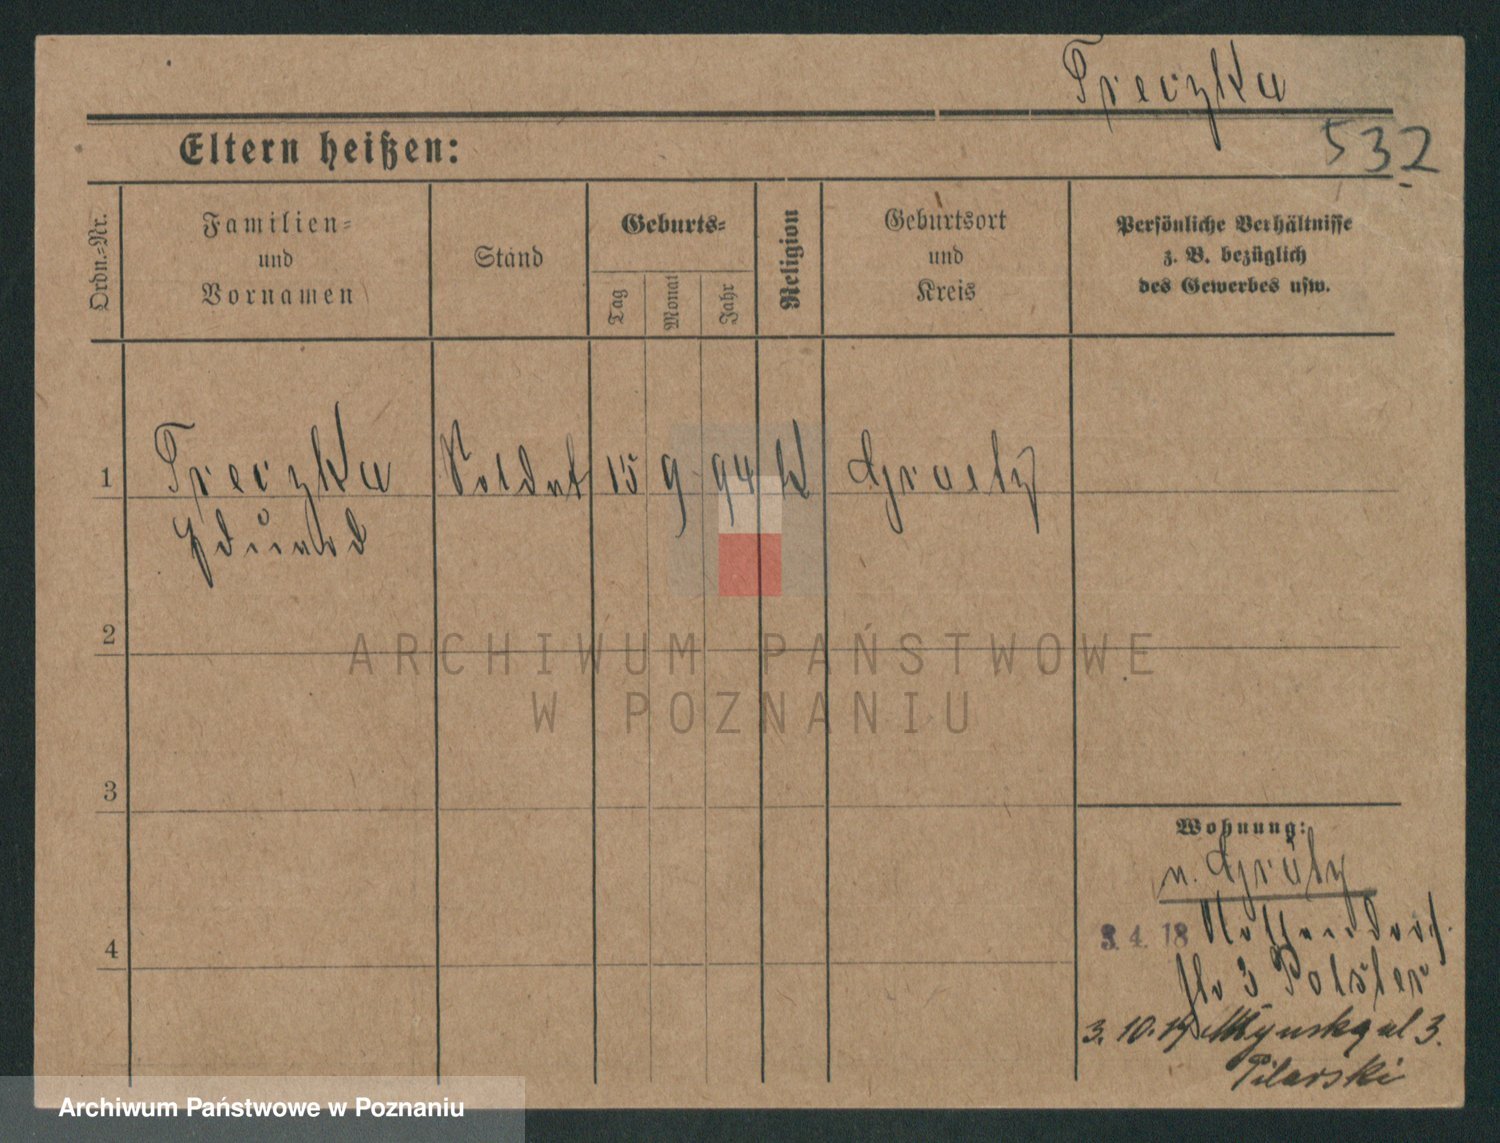 Preczka
532
Eltern heißen:
Ordn.-Nr.
Familien-
und
Vornamen
Stand
Geburts-
Tag
Monat
Jahr
Religion
Geburtsort
und
Kreis
Persönliche Verhältnisse
z. B. bezüglich
des Gewerbes usw.
1 Preczka Soldat 15 9 94 K Graetz
Eduard
2
ARCHIWUM PAŃSTWOWE
W POZNANIU
3
Wohnung:
n. Grätz
3. 4. 18
4
3 Polster
3. 10. 19 Młyńska ul 3.
Pilarski
Archiwum Państwowe w Poznaniu